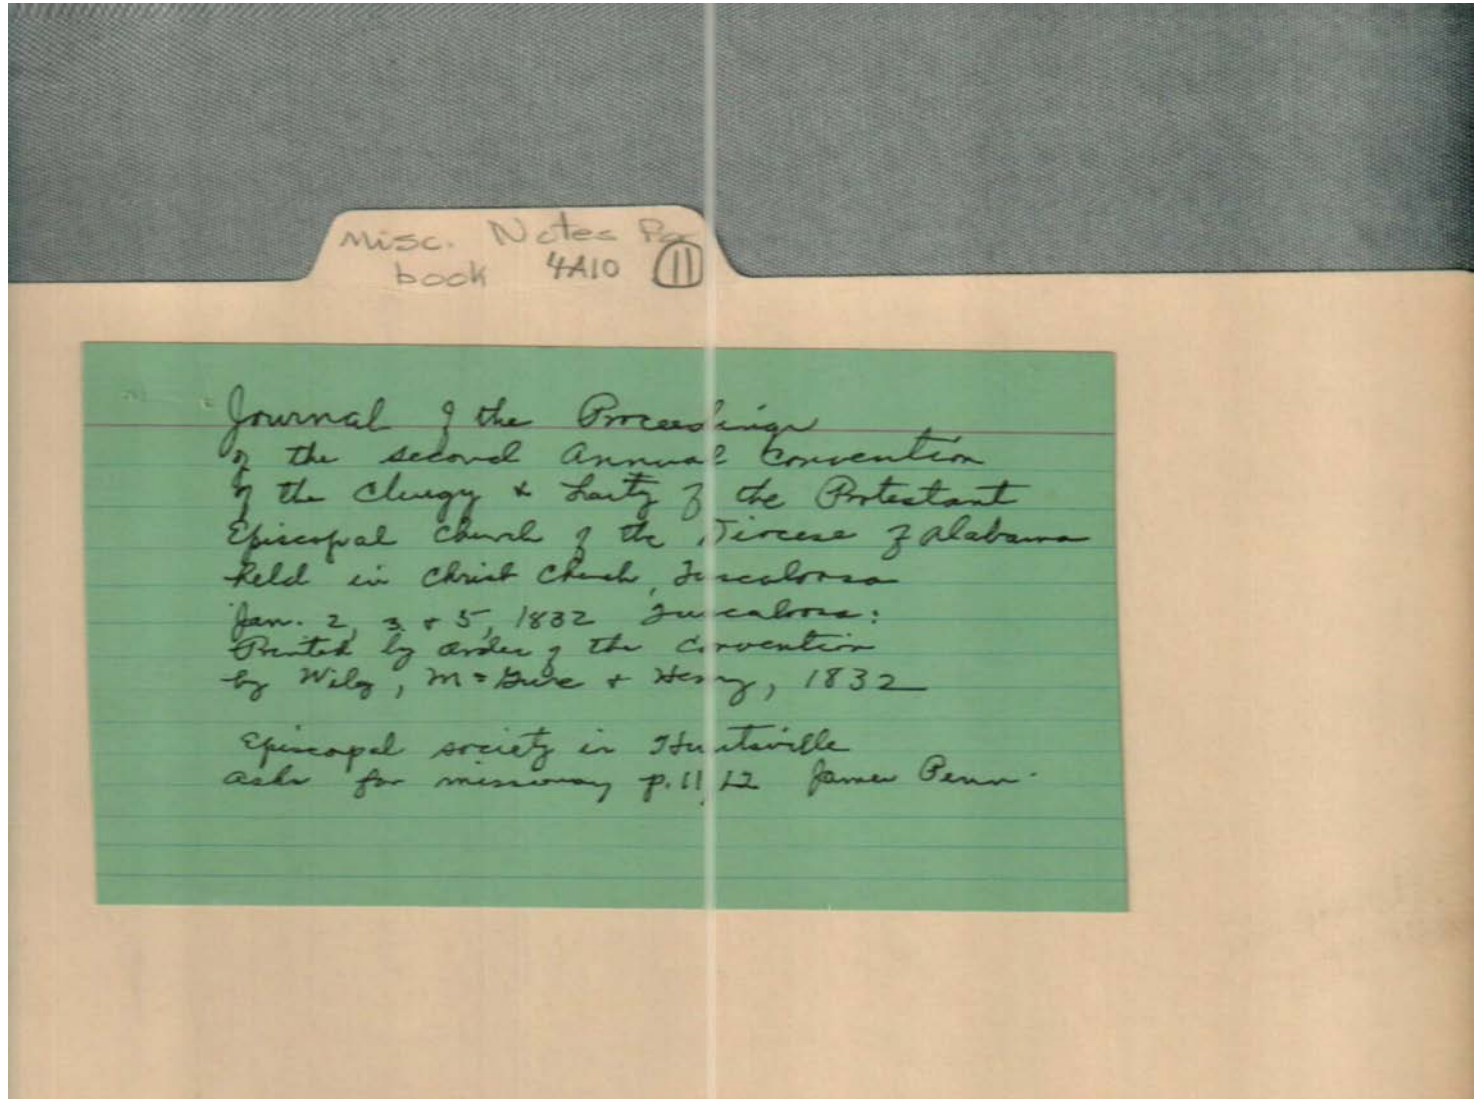 Misc. Notes For
book 4A10 11
Journal of the Proceedings
of the second Annual Convention
of the Clergy & Laity of the Protestant
Episcopal Church of the Diocese of Alabama
held in Christ Church, Tuscaloosa
Jan. 2, 3 & 5, 1832 Tuscaloosa:
Printed by order of the Convention
by Wiley, McGuire & Henry, 1832
Episcopal society in Huntsville
asks for missionary p. 11, 12 James Penn.